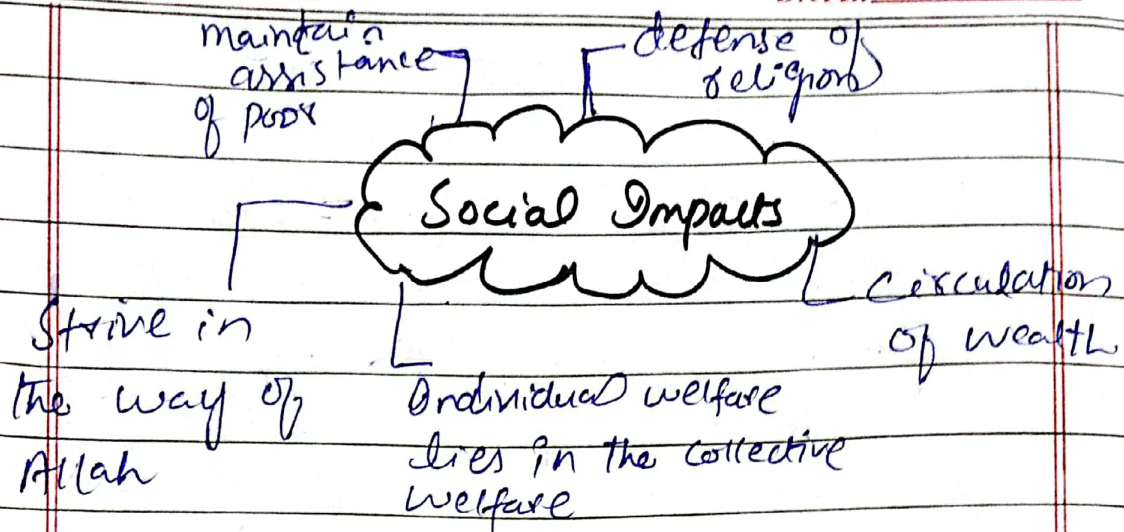 maintain
assistance
of poor
defense of
religion
Social Impacts
Strive in
the way of
Allah
Individual welfare
lies in the collective
welfare
Circulation
of wealth